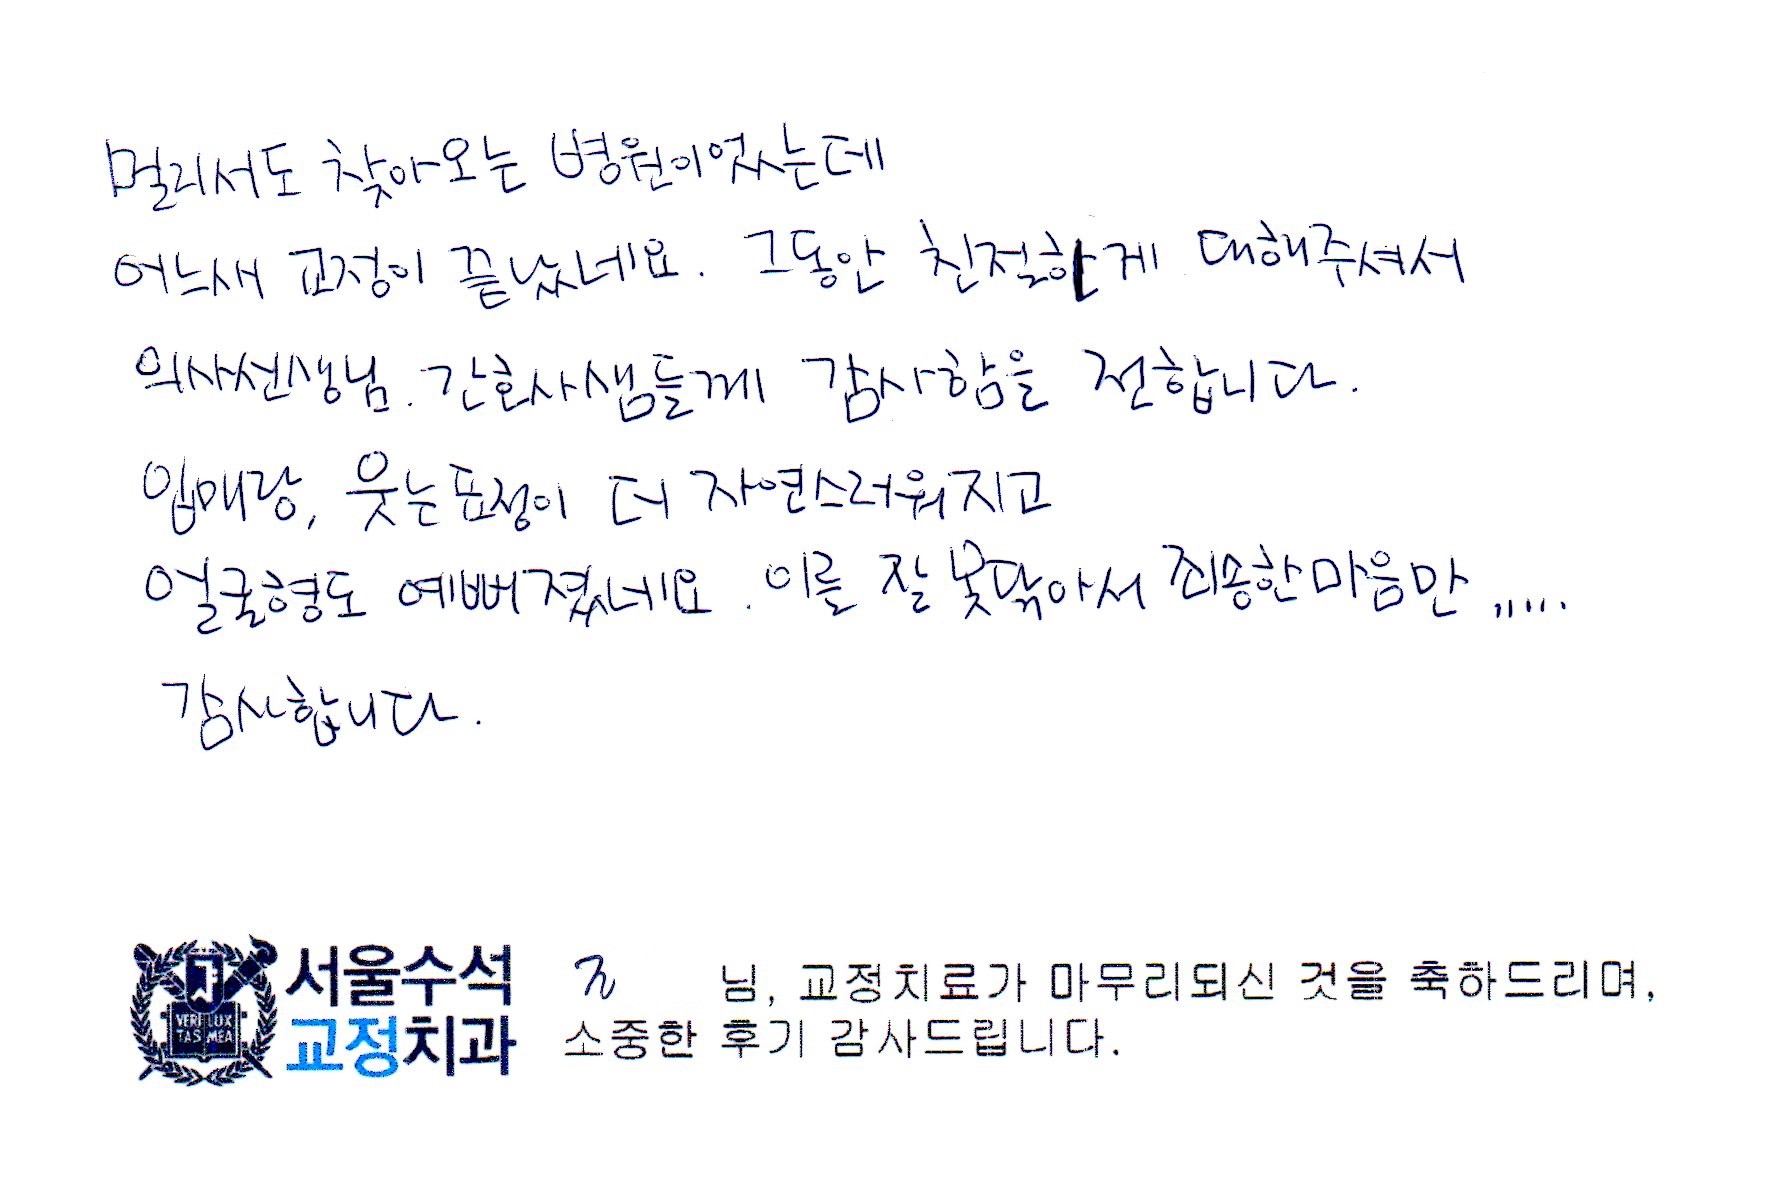 멀리서도 찾아오는 병원이었는데
어느새 교정이 끝났네요. 그동안 친절하게 대해주셔서
의사선생님. 간호사샘들께 감사함을 전합니다.
입매랑, 웃는표정이 더 자연스러워지고
얼굴형도 예뻐졌네요. 이를 잘 못닦아서 죄송한마음만 .....
감사합니다.
서울수석
교정치과
VERI LUX
TAS MEA
님, 교정치료가 마무리되신 것을 축하드리며,
소중한 후기 감사드립니다.